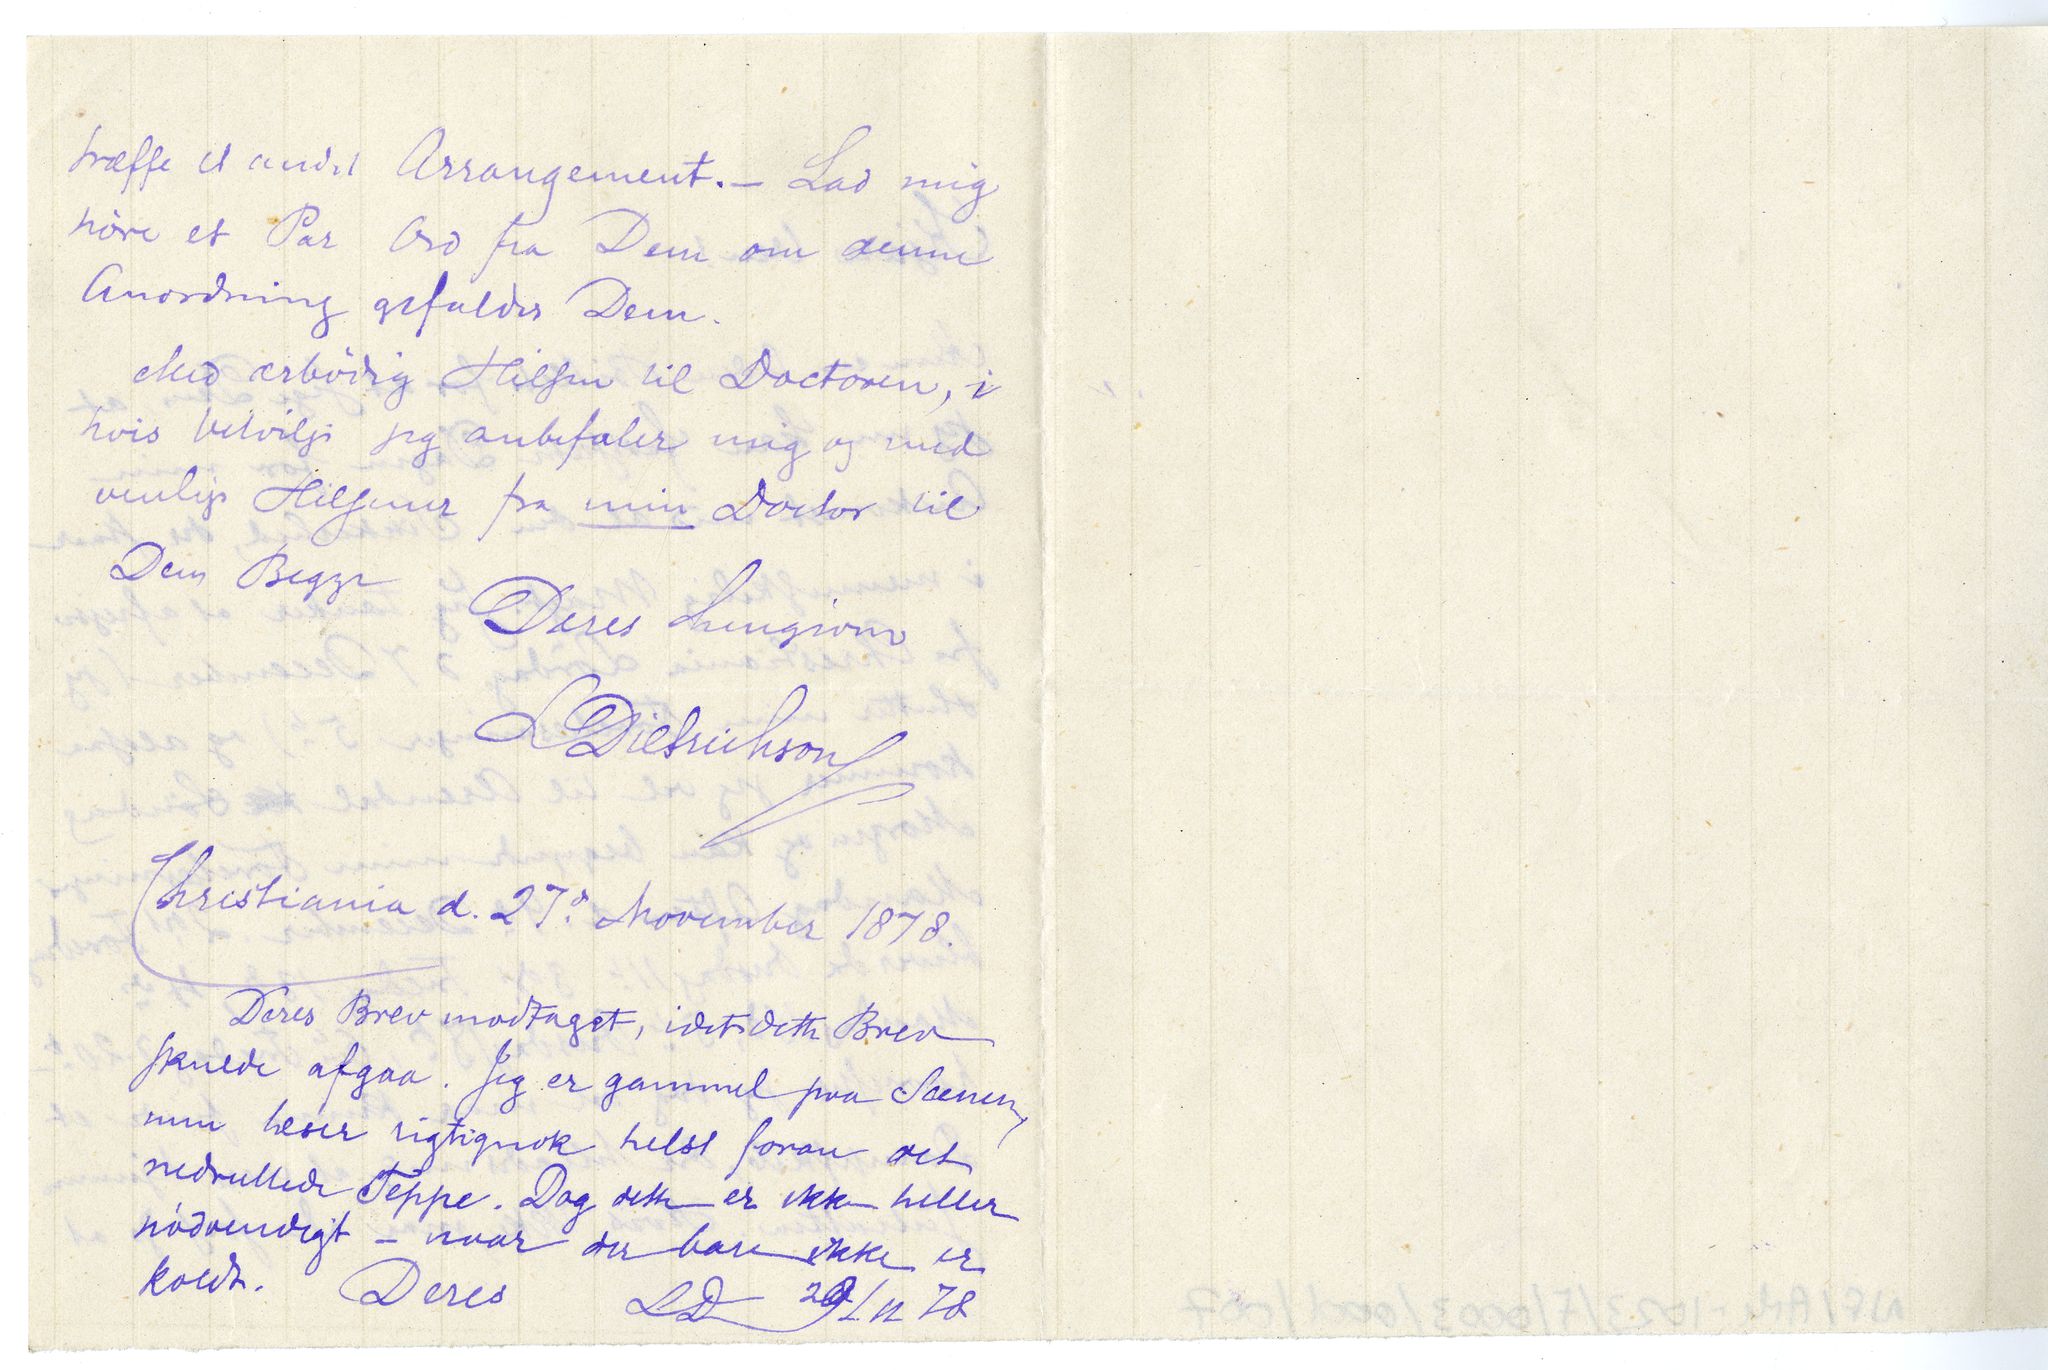 træffe et andet Arrangement. – Lad mig
høre et Par Ord fra Dem om denne
Anordning gefalder Dem.
Med ærbödig Hilsen til Doctoren, i
hvis Velvilje jeg anbefaler mig og med
venlige Hilsener fra min Doctor til
Dem Begge
Deres hengivne
LDietrichson
Christiania d. 27d. November 1878.
Deres Brev modtaget, idet dette Brev
skulde afgaa. Jeg er gammel paa Scenen,
men læser rigtignok helst foran det
nedrullede Teppe. Dog dette er ikke heller
nödvendigt – naar der bare ikke er
koldt. Deres LD 29/11 78